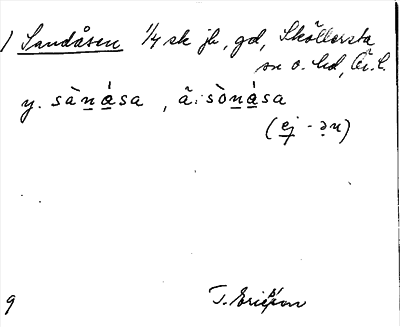 ) Sandåsen 1/4 sk jb, gd, Sköllersta
sn o. hd, Ör. l.
y. sàn̲á̲sa, ä: sòn̲á̲sa
(ej -ən)
9 T. Ericsson